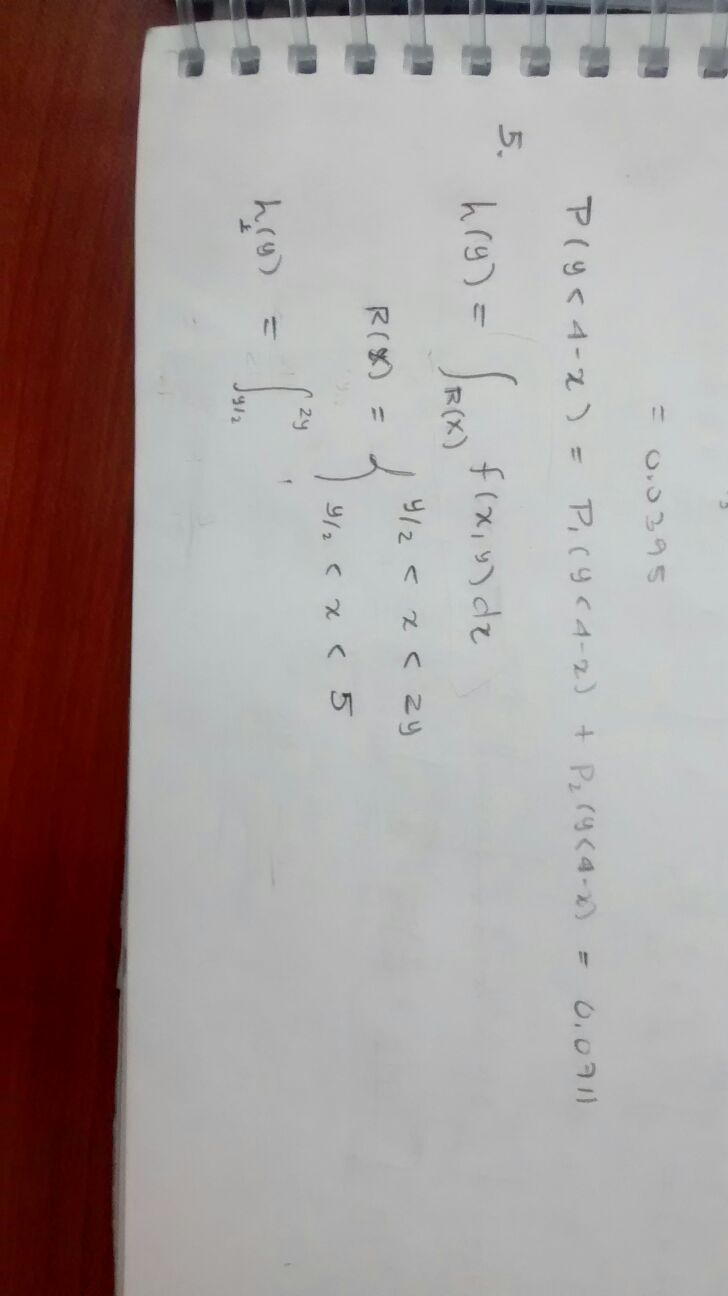 = 0.0395
P(y < 4-x) = P₁(y < 4-x) + P₂(y < 4-x) = 0.0711
5. h(y) = ∫_{R(x)} f(x,y) dx
R(x) = { y/2 < x < 2y
y/2 < x < 5
h₁(y) = ∫_{y/2}^{2y}